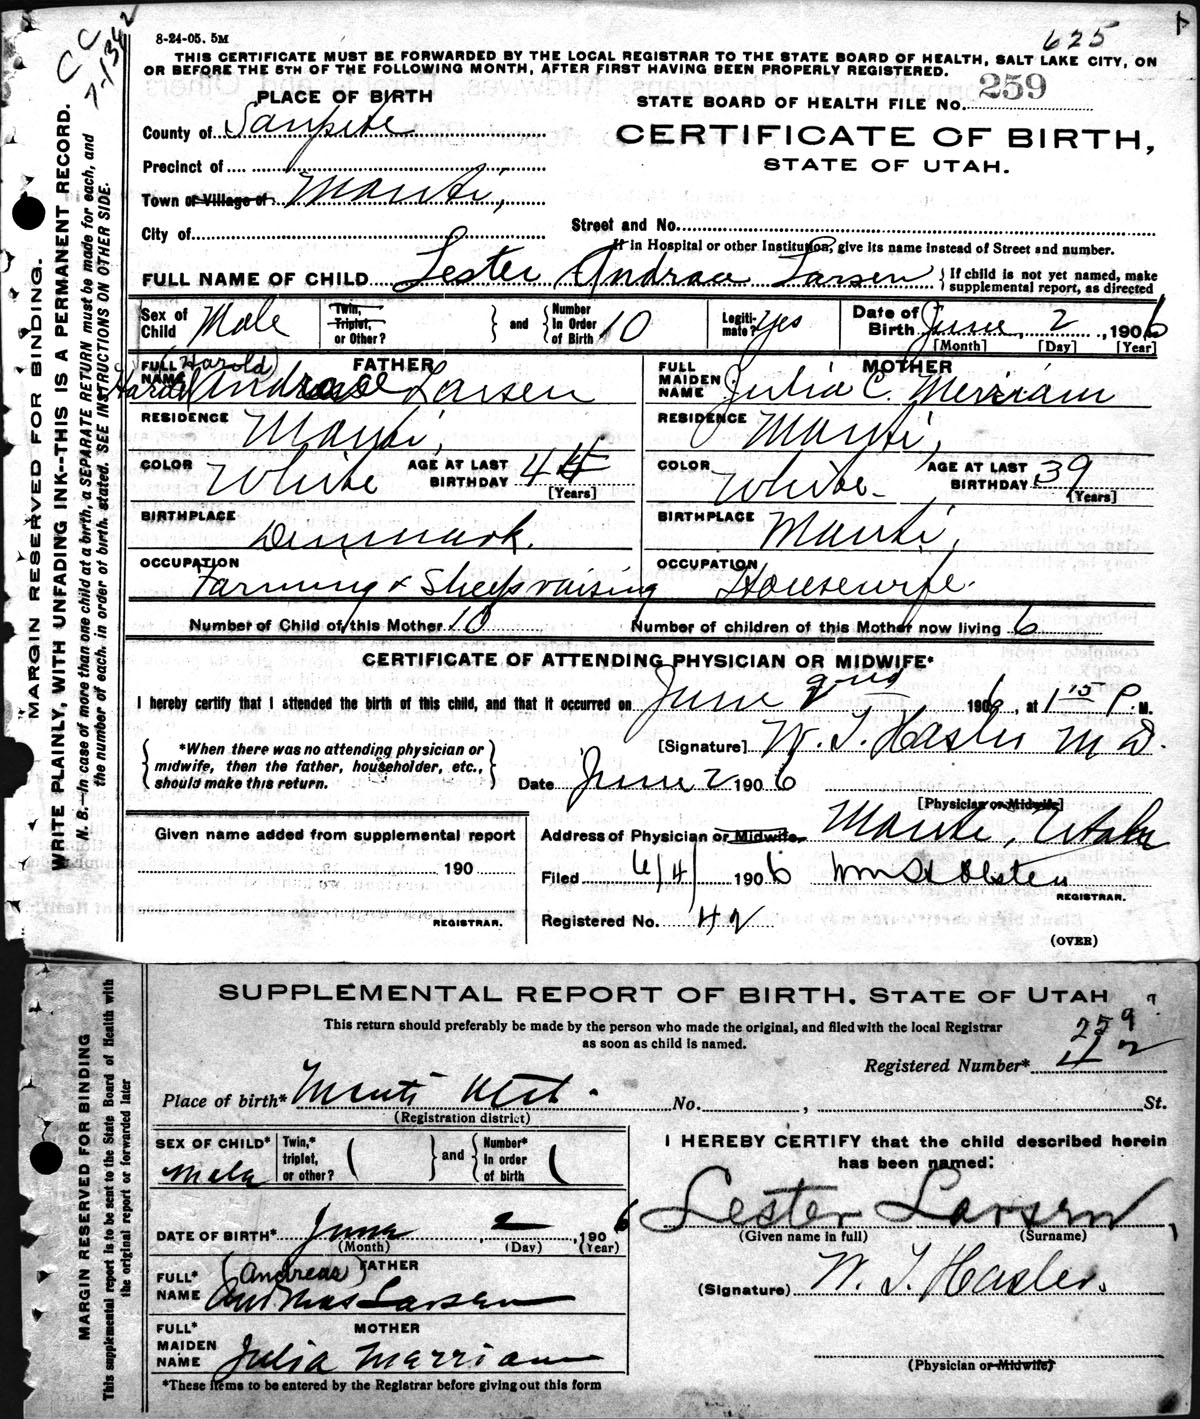 C C
7-1362
625
8-24-05. 5M
THIS CERTIFICATE MUST BE FORWARDED BY THE LOCAL REGISTRAR TO THE STATE BOARD OF HEALTH, SALT LAKE CITY, ON
OR BEFORE THE 5TH OF THE FOLLOWING MONTH, AFTER FIRST HAVING BEEN PROPERLY REGISTERED.
STATE BOARD OF HEALTH FILE No. 259
CERTIFICATE OF BIRTH,
STATE OF UTAH.
PLACE OF BIRTH
County of Sanpete
Precinct of
Town or Village of Manti,
City of
Street and No.
If in Hospital or other Institution, give its name instead of Street and number.
FULL NAME OF CHILD Lester Andrace Larsen { If child is not yet named, make
supplemental report, as directed
Sex of Child Male
Twin, Triplet, or Other? } and { Number In Order of Birth 10
Legitimate? Yes
Date of Birth June 2, 1906
[Month] [Day] [Year]
FATHER
FULL NAME (Harold)
Andrace Larsen
RESIDENCE Manti,
COLOR White AGE AT LAST BIRTHDAY 44
[Years]
BIRTHPLACE Denmark.
OCCUPATION Farming & Sheepraising
MOTHER
FULL MAIDEN NAME Julia C. Merriam
RESIDENCE Manti,
COLOR White AGE AT LAST BIRTHDAY 39
[Years]
BIRTHPLACE Manti,
OCCUPATION Housewife.
Number of Child of this Mother 10 Number of children of this Mother now living 6
CERTIFICATE OF ATTENDING PHYSICIAN OR MIDWIFE*
I hereby certify that I attended the birth of this child, and that it occurred on June 2nd 1906, at 1 15 P. M.
{ *When there was no attending physician or
midwife, then the father, householder, etc.,
should make this return. }
[Signature] W. T. Hasler M D.
Date June 2 1906
[Physician or Midwife]
Given name added from supplemental report
190
REGISTRAR.
Address of Physician or Midwife. Manti, Utah
Filed 6/4/ 1906
REGISTRAR.
Registered No. 42
(OVER)
MARGIN RESERVED FOR BINDING.
WRITE PLAINLY, WITH UNFADING INK--THIS IS A PERMANENT RECORD.
N. B.—In case of more than one child at a birth, a SEPARATE RETURN must be made for each, and
the number of each, in order of birth, stated. SEE INSTRUCTIONS ON OTHER SIDE.
SUPPLEMENTAL REPORT OF BIRTH. STATE OF UTAH
This return should preferably be made by the person who made the original, and filed with the local Registrar
as soon as child is named.
259
Registered Number* 42
Place of birth* Manti Utah. No. , St.
(Registration district)
SEX OF CHILD* Male
Twin,* triplet, or other? } and { Number* In order of birth
DATE OF BIRTH* June 2, 1906
(Month) (Day) (Year)
FATHER
FULL* NAME (Andreas)
Andreas Larsen
MOTHER
FULL* MAIDEN NAME Julia Merriam
*These items to be entered by the Registrar before giving out this form
I HEREBY CERTIFY that the child described herein
has been named:
Lester Larsen,
(Given name in full) (Surname)
(Signature) W. T. Hasler.
(Physician or Midwife)
MARGIN RESERVED FOR BINDING
This supplemental report is to be sent to the State Board of Health with
the original report or forwarded later